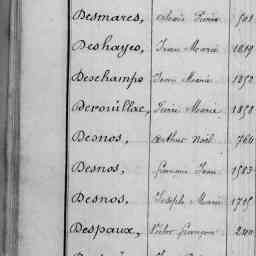 Desmares, Pierre 508
Deshayes, Jean Marie 1819
Deschamps Jean Marie 1852
Derouillac, Pierre Marie 1858
Desnos, Arthur Noël 764
Desnos, Jean 1583
Desnos, Joseph Marie 1795
Despaux, Victor François 240